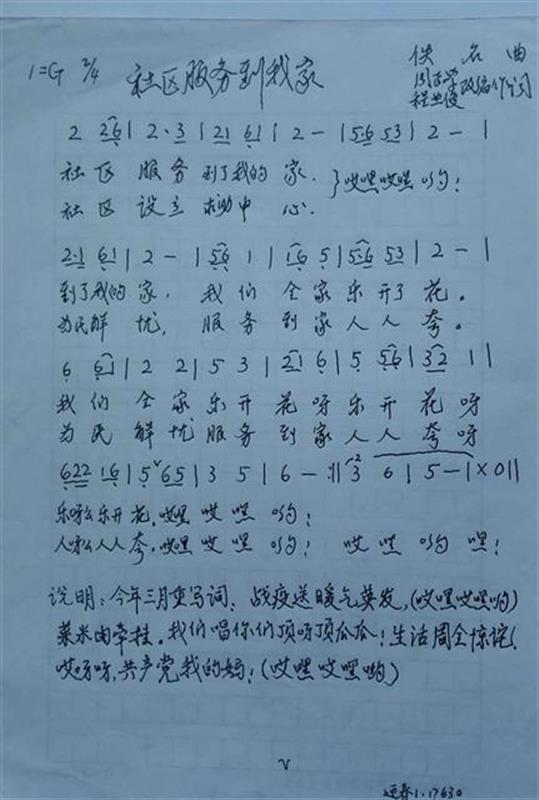 1=G 2/4 社区服务到我家 佚名曲
改编作词
2 26 | 2·3 | 21 61 | 2 - | 56 53 | 2 - |
社区服务到了我的家. }哎嘿哎嘿哟!
社区设立 中心.
2·1 61 | 2 - | 56 1 | 16 5 | 56 53 | 2 - |
到了我的家,我们全家乐开了花。
为民解忧,服务到家人人夸。
6 61 | 2 2 | 5 3 | 21 6 | 5 56 | 32 1 |
我们全家乐开花呀乐开花呀
为民解忧服务到家人人夸呀
622 16 | 5 65 | 3 5 | 6 - :|| 3 6 | 5 - | X 0 ||
乐呀么乐开花,哎嘿哎嘿哟!
人呀么人人夸,哎嘿哎嘿哟! 哎嘿哟嘿!
说明:今年三月重写词,战疫送暖气英发,(哎嘿哎嘿哟)
菜米肉牵挂。我们唱你们顶呀顶瓜瓜!生活周全惊诧!
哎呀呀,共产党我的妈!(哎嘿哎嘿哟)
1.17630